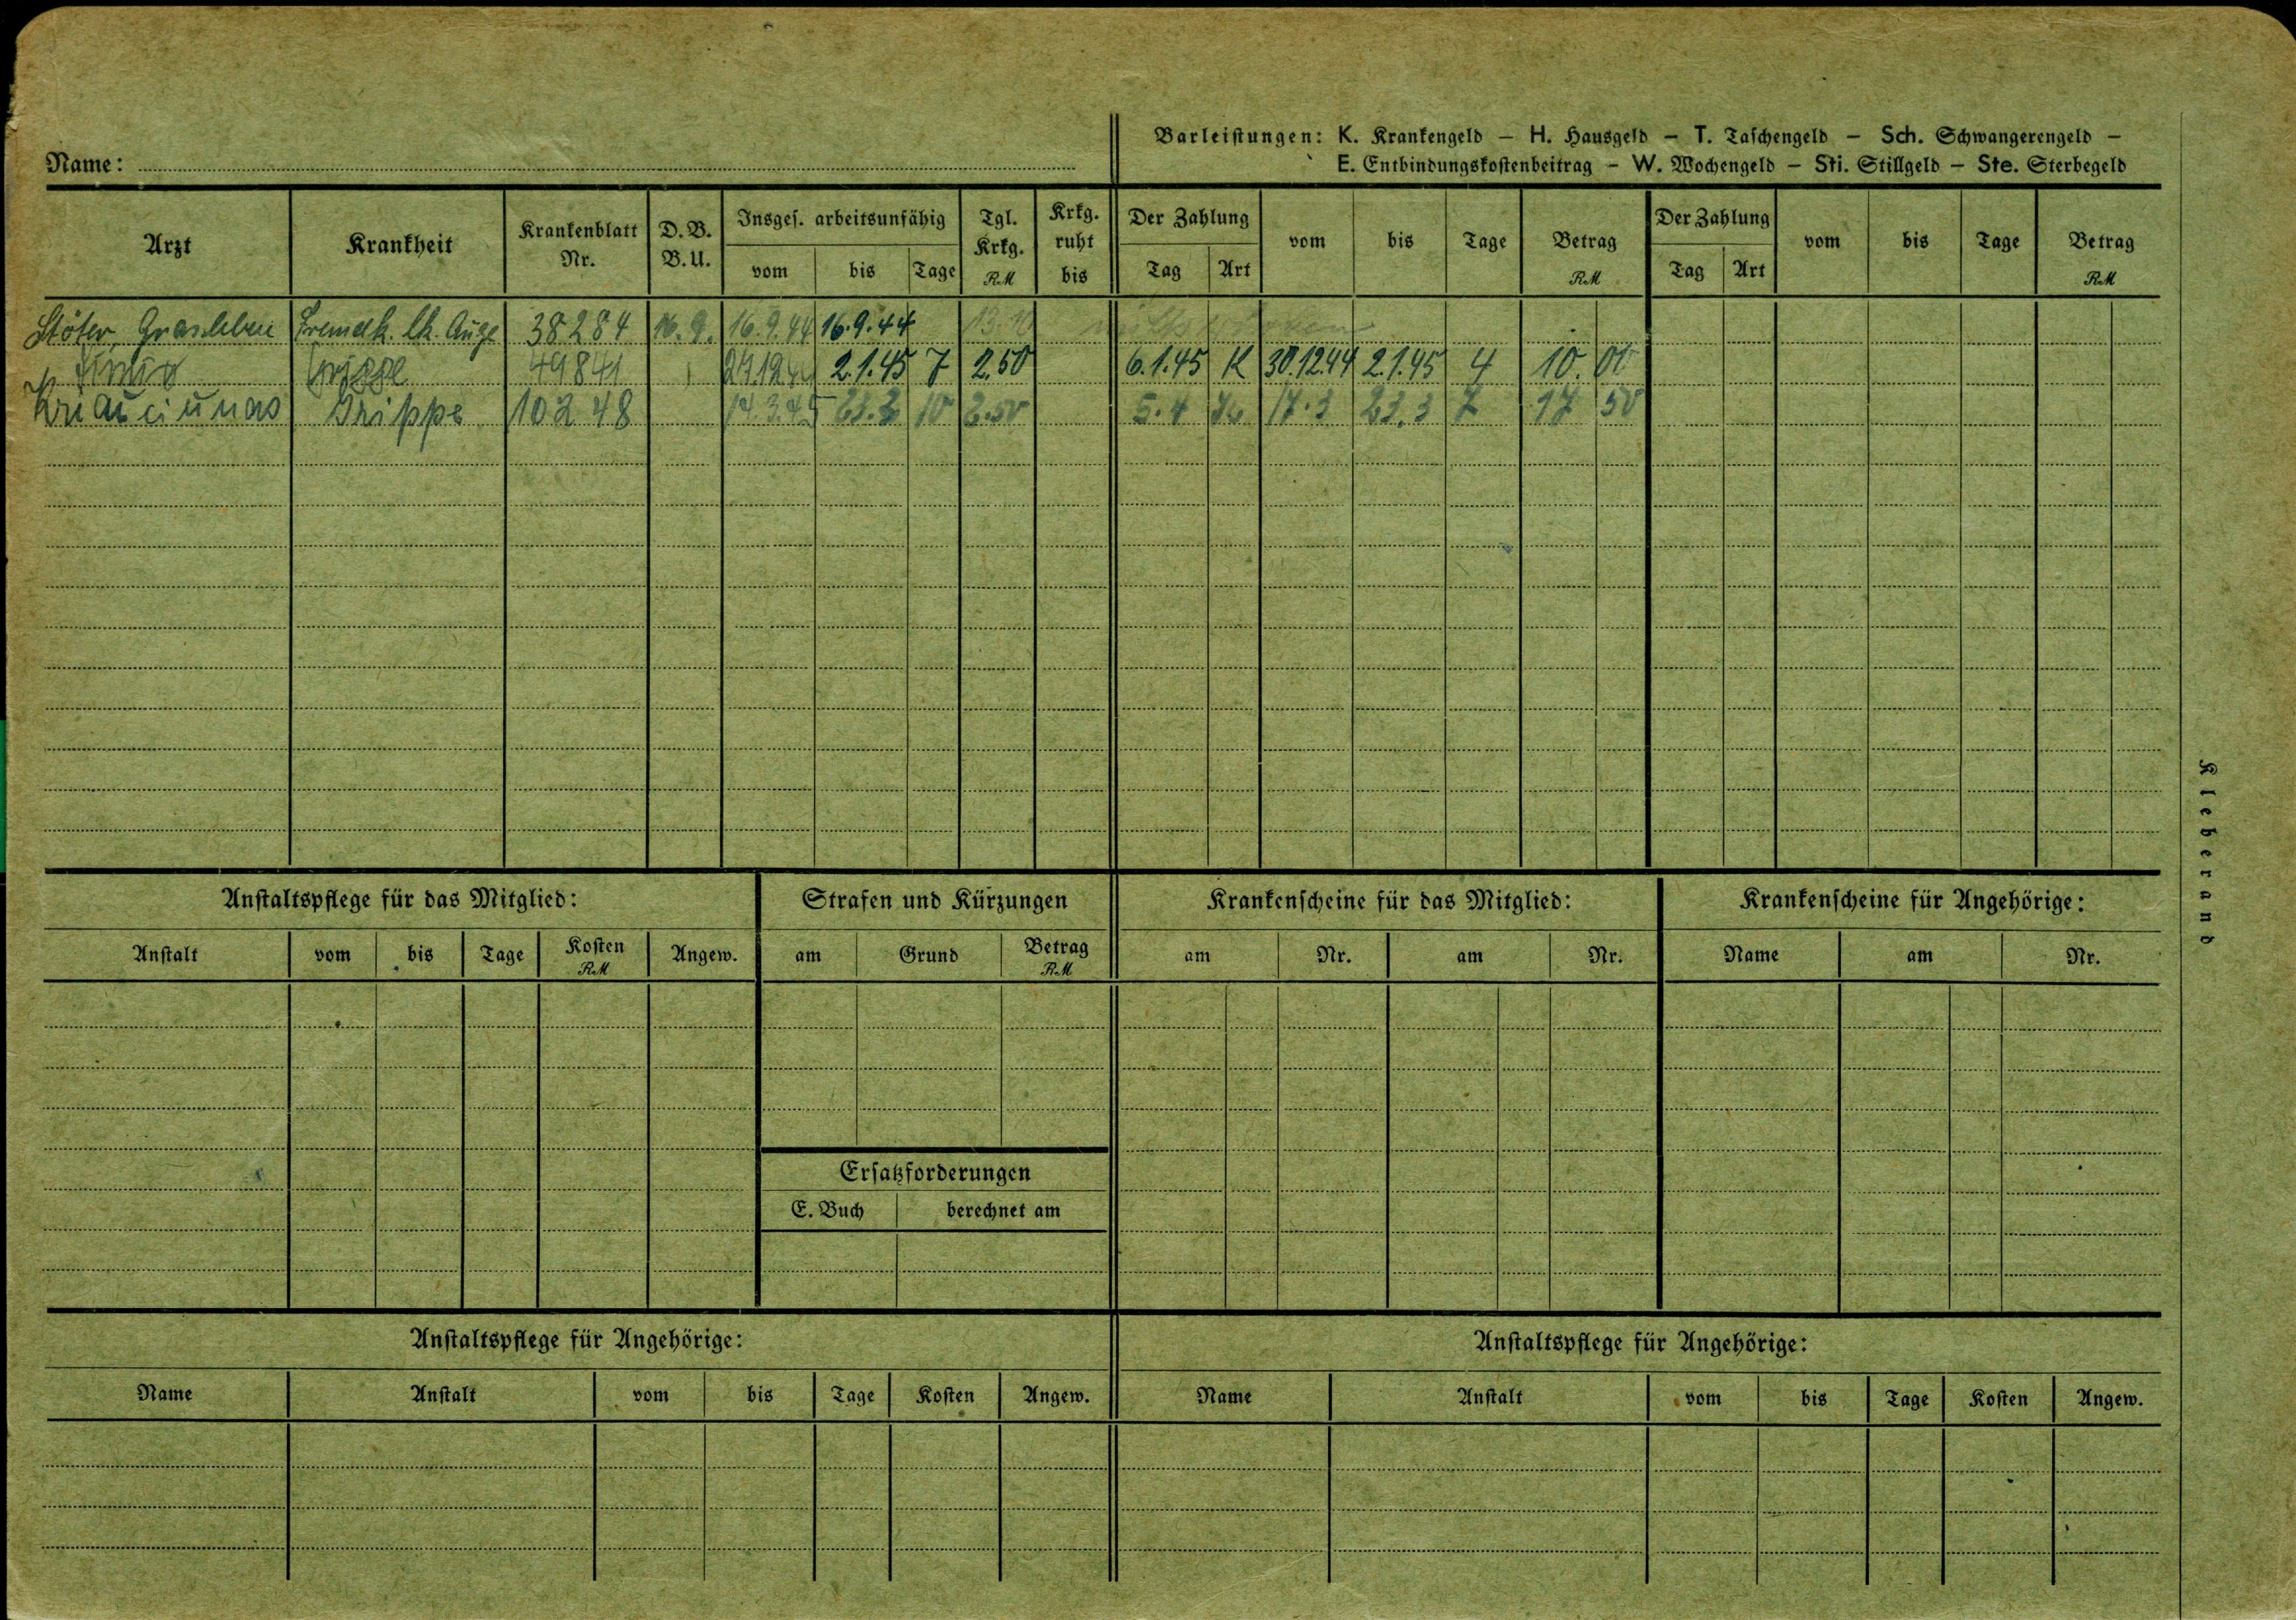 Name:
Barleistungen: K. Krankengeld — H. Hausgeld — T. Taschengeld — Sch. Schwangerengeld —
E. Entbindungskostenbeitrag — W. Wochengeld — Sti. Stillgeld — Ste. Sterbegeld
Arzt Krankheit Krankenblatt Nr. D. B. B. U. Insges. arbeitsunfähig vom bis Tage Tgl. Krkg. RM Krkg. ruht bis Der Zahlung Tag Art vom bis Tage Betrag RM Der Zahlung Tag Art vom bis Tage Betrag RM
Stöter, 38284 16.9. 16.9.44 16.9.44
Grippe 49841 2.1.45 7 2.50 6.1.45 K 30.12.44 2.1.45 4 10.
Kriauciunas Grippe 10248 14.3.45 23.3 10 2.50 5.4 17.3 23.3 7 17 50
Anstaltspflege für das Mitglied: Strafen und Kürzungen Krankenscheine für das Mitglied: Krankenscheine für Angehörige:
Anstalt vom bis Tage Kosten RM Angew. am Grund Betrag RM am Nr. am Nr. Name am Nr.
Ersatzforderungen
E. Buch berechnet am
Anstaltspflege für Angehörige: Anstaltspflege für Angehörige:
Name Anstalt vom bis Tage Kosten Angew. Name Anstalt vom bis Tage Kosten Angew.
Kleberand